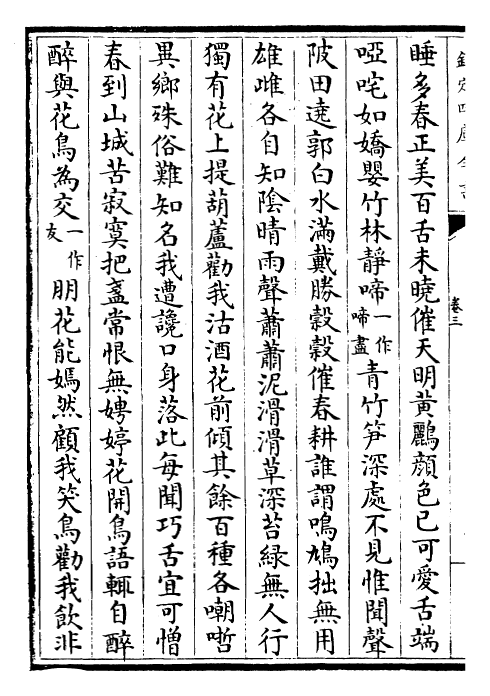 欽定四庫全書
卷三
睡多春正美百舌未曉催天明黃鸝顔色已可愛舌端
啞咤如嬌嬰竹林靜啼一作啼盡青竹笋深處不見惟聞聲
陂田遶郭白水滿戴勝穀穀催春耕誰謂鳴鳩拙無用
雄雌各自知陰晴雨聲蕭蕭泥滑滑草深苔綠無人行
獨有花上提葫蘆勸我沽酒花前傾其餘百種各嘲哳
異鄉殊俗難知名我遭讒口身落此每聞巧舌宜可憎
春到山城苦寂寞把盞常恨無娉婷花開鳥語輒自醉
醉與花鳥為交一作友朋花能嫣然顧我笑鳥勸我飲非